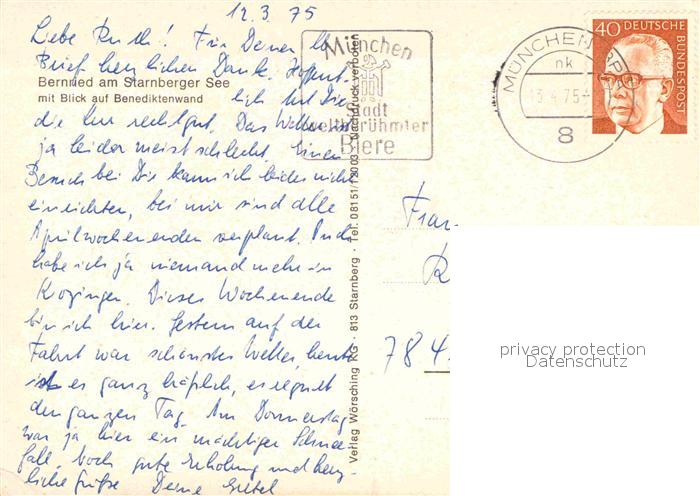 12.3.75
Liebe Ruth! Für Deinen lb
Brief herzlichen Dank. Hoffent-
Bernried am Starnberger See
mit Blick auf Benediktenwand
lich tut Dir
die Kur recht gut. Das Wetter ist
ja leider meist schlecht. Einen
Besuch bei Dir kann ich leider nicht
einrichten, bei mir sind alle
Aprilwochenenden verplant. Auch
habe ich ja niemand mehr in
Krozingen. Dieses Wochenende
bin ich hier. Gestern auf der
Fahrt war schönstes Wetter, heute
ist es ganz häßlich, es regnet
den ganzen Tag. Am Donnerstag
war ja hier ein mächtiger Schnee-
fall. Noch gute Erholung und herz-
liche Grüße Deine
Verlag Wörsching KG · 813 Starnberg · Tel. 08151/12003 Nachdruck verboten
München
Stadt
weltberühmter
Biere
MÜNCHEN
nk
13.4.75
8
40 DEUTSCHE
BUNDESPOST
Frau
784
privacy protection
Datenschutz